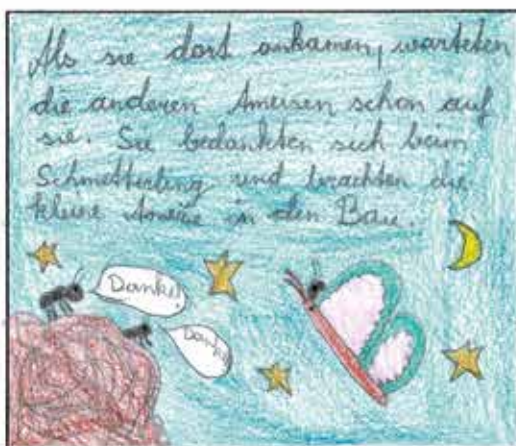 Als sie dort ankamen, warteten
die anderen Ameisen schon auf
sie. Sie bedankten sich beim
Schmetterling und brachten die
kleine Ameise in den Bau.
Danke!
Danke